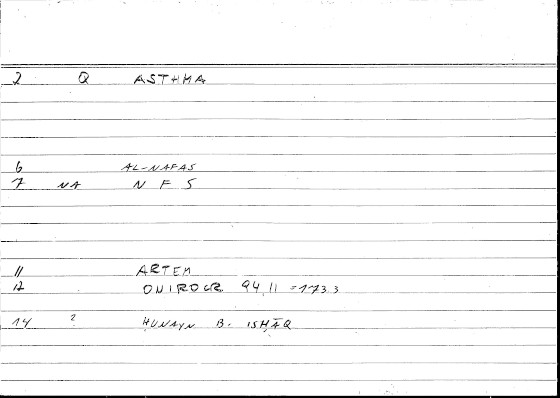 2 Q ASTHMA
6 AL-NAFAS
7 NA N F S
11 ARTEM
12 ONIROCR. 94,11 = 173.3
14 2 ḤUNAYN B. ISḤĀQ